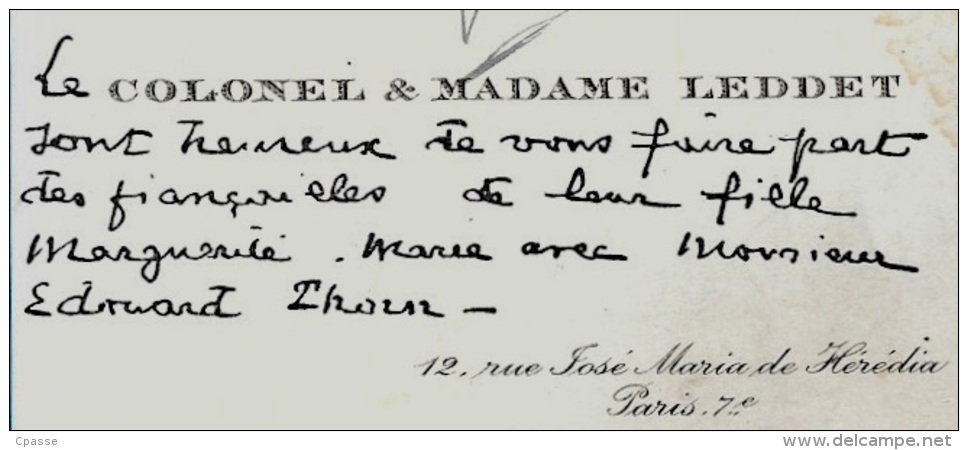 Le COLONEL & MADAME LEDDET
sont heureux de vous faire part
des fiançailles de leur fille
Marguerite. Marie avec Monsieur
Edouard Thorn –
12, rue José Maria de Hérédia
Paris. 7e
Cpasse
www.delcampe.net